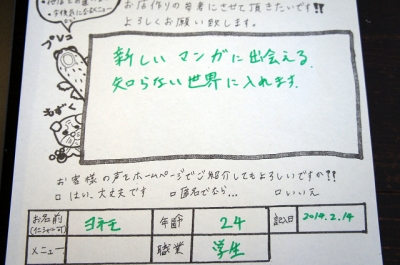 お店作りの参考にさせて頂きたいです!!
よろしくお願い致します。
プリコ
もずく
新しいマンガに出会える。
知らない世界に入れます。
お客様の声をホームページでご紹介してもよろしいですの?!!
□はい、大丈夫です □匿名でなら… □いいえ
お名前 ヨネモ 年齢 24 記入日 2014.2.14
メニュー 職業 学生